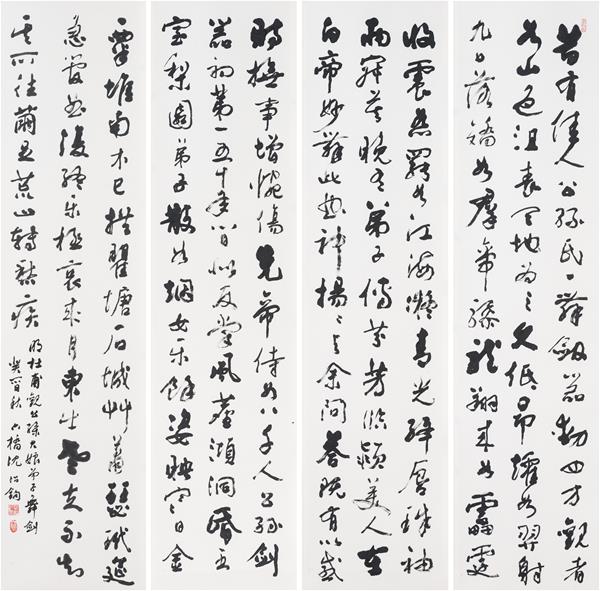 昔有佳人公孫氏一舞劍器動四方觀者
如山色沮喪天地為之久低昂㸌如羿射
九日落矯如群帝驂龍翔來如雷霆
收震怒罷如江海凝青光絳唇珠袖
兩寂寞晚有弟子傳芬芳臨潁美人在
白帝妙舞此曲神揚揚與余問答既有以感
時撫事增惋傷先帝侍女八千人公孫劍
器初第一五十年間似反掌風塵澒洞昏王
室梨園弟子散如煙女樂餘姿映寒日金
粟堆南木已拱瞿塘石城艸蕭瑟玳筵
急管曲復終樂極哀來月東出老夫不知
其所往繭足荒山轉愁疾
杜甫觀公孫大娘弟子舞劍
癸酉秋六橋沈